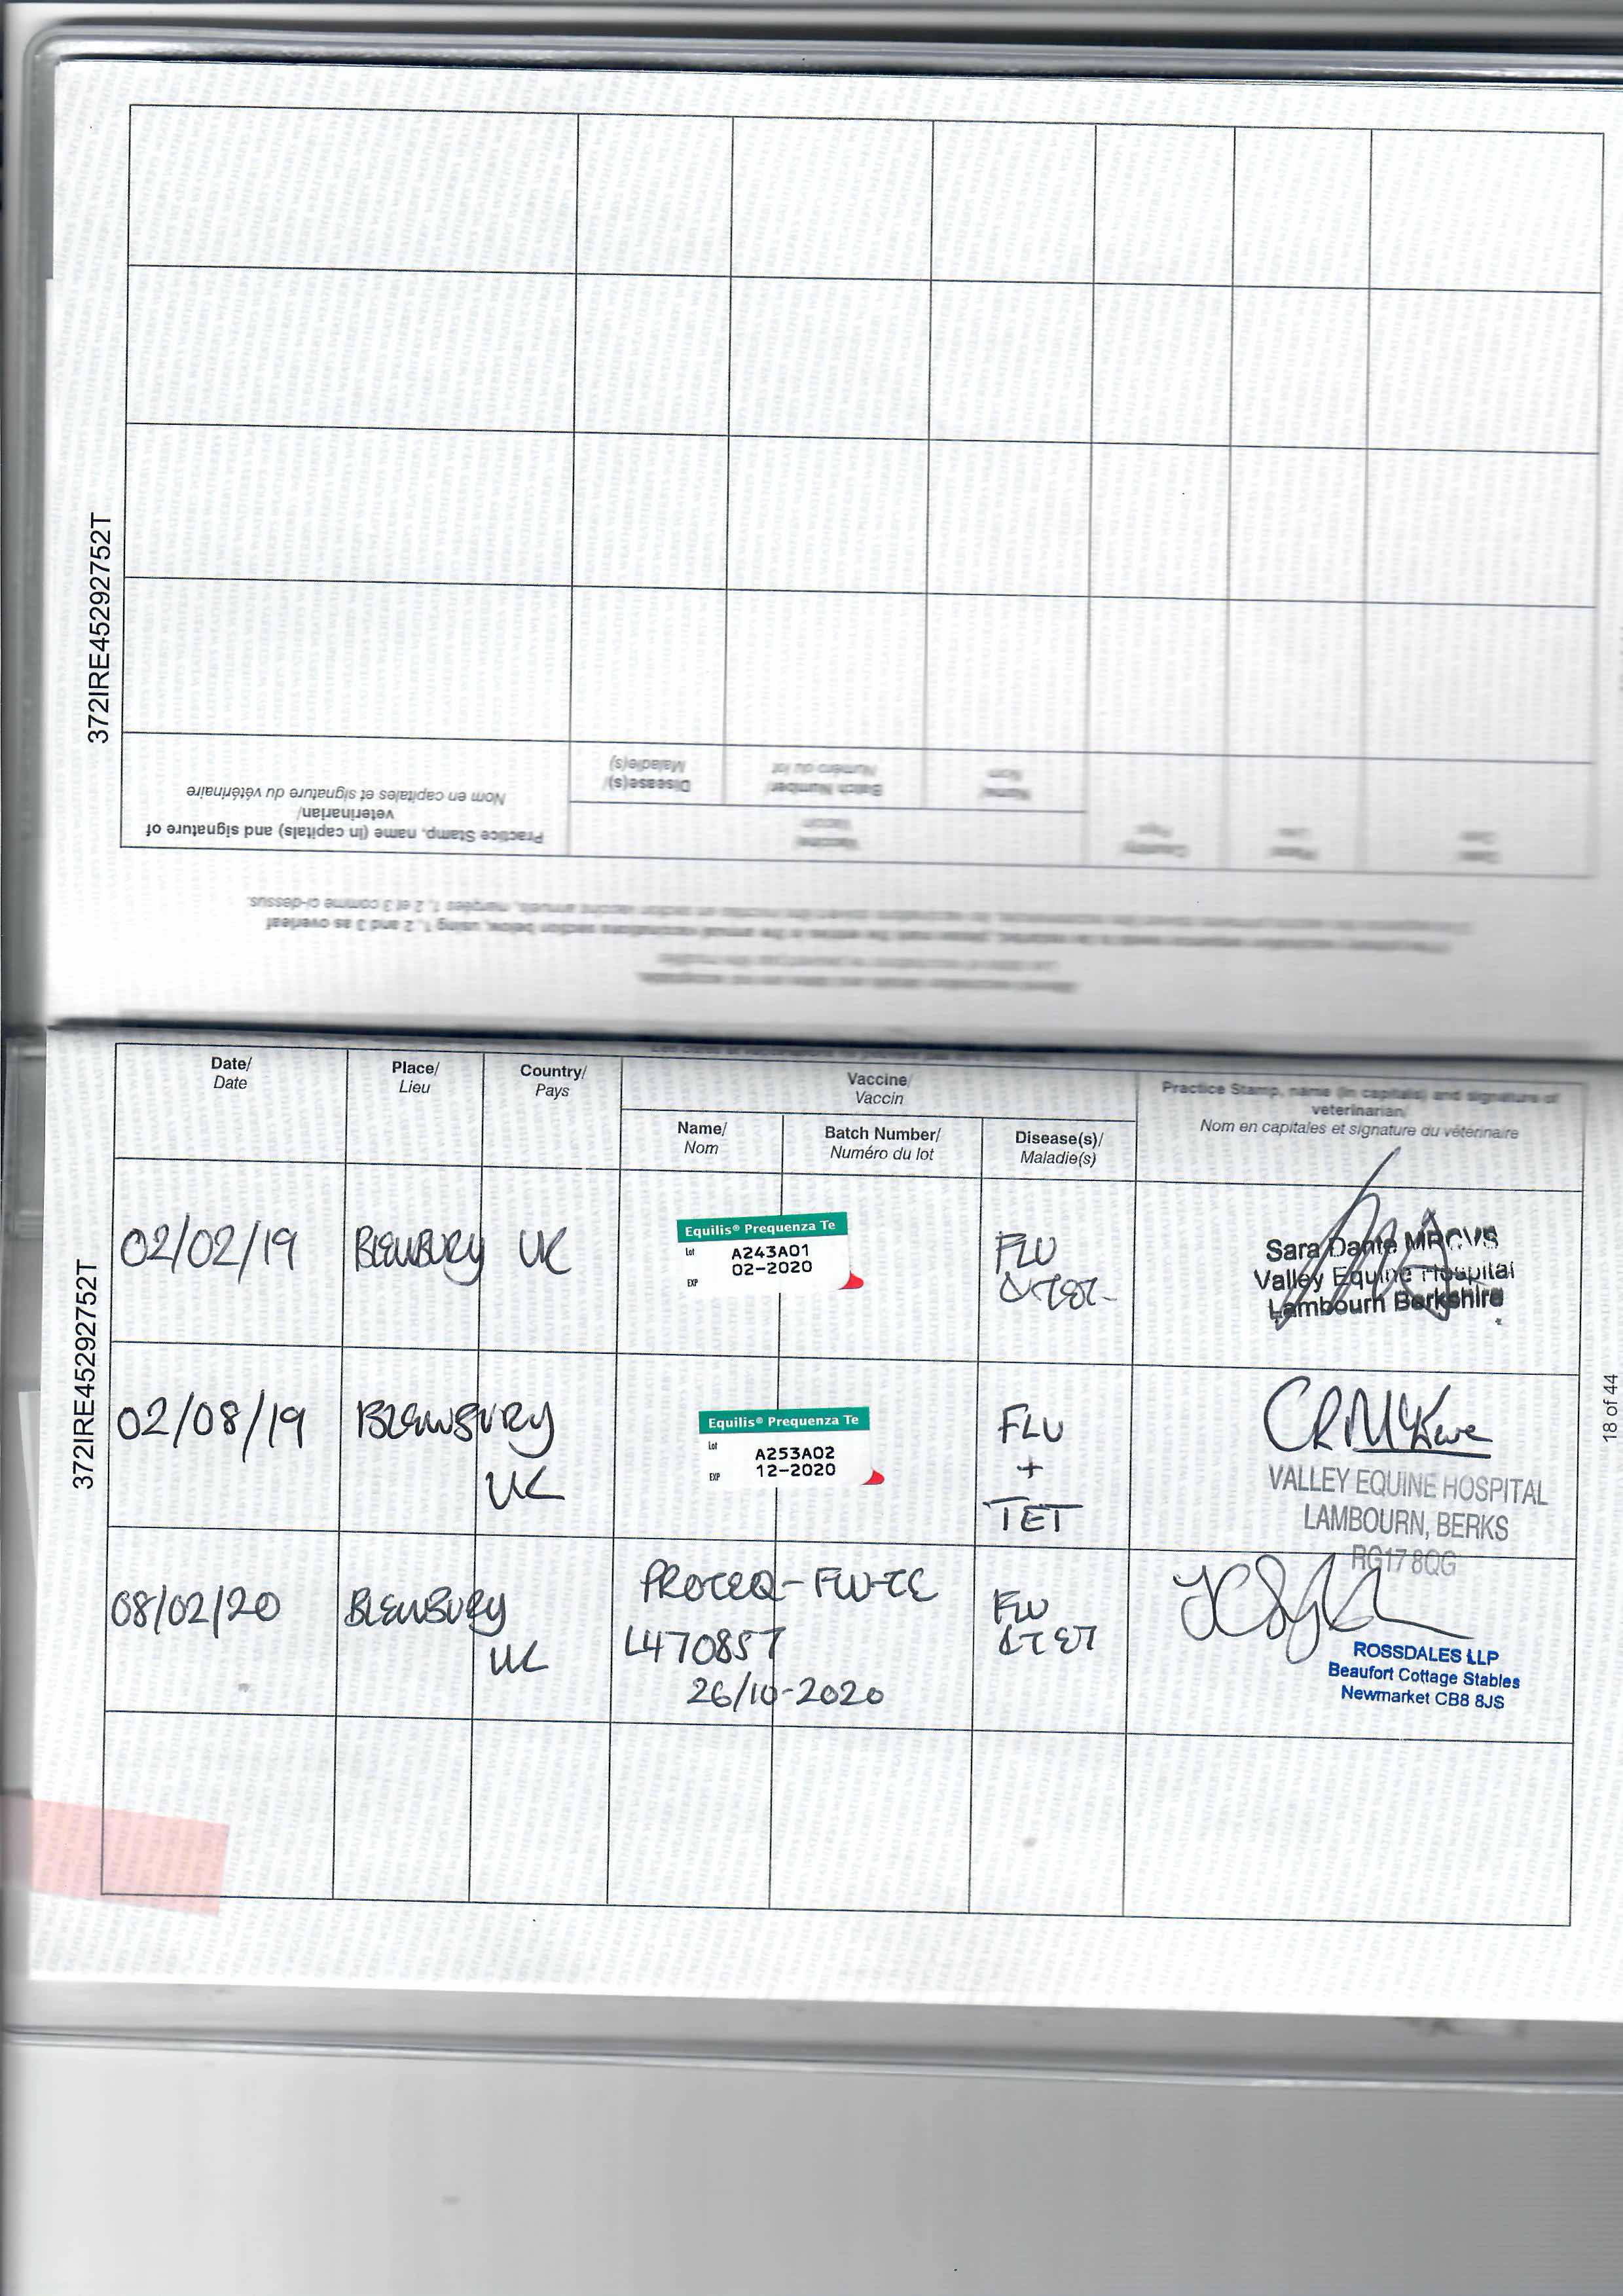 372IRE45292752T
Practice Stamp, name (in capitals) and signature of
veterinarian/
Nom en capitales et signature du vétérinaire
Disease(s)/
Maladie(s)
Batch Number/
Numéro du lot
Name/
Nom
Vaccine/
Vaccin
Country/
Pays
Place/
Lieu
Date/
Date
372IRE45292752T
18 of 44
Date/
Date
Place/
Lieu
Country/
Pays
Vaccine/
Vaccin
Name/
Nom
Batch Number/
Numéro du lot
Disease(s)/
Maladie(s)
Practice Stamp, name (in capitals) and signature of
veterinarian/
Nom en capitales et signature du vétérinaire
02/02/19
BLEWBURY
UK
Equilis® Prequenza Te
Lot A243A01
EXP 02-2020
FLU
&TET
Sara Dante MRCVS
Valley Equine Hospital
Lambourn Berkshire
02/08/19
BLEWBURY
UK
Equilis® Prequenza Te
Lot A253A02
EXP 12-2020
FLU
+
TET
VALLEY EQUINE HOSPITAL
LAMBOURN, BERKS
RG17 8QG
08/02/20
BLEWBURY
UK
PROTEQ-FLU-TE
L470857
26/10-2020
FLU
&TET
ROSSDALES LLP
Beaufort Cottage Stables
Newmarket CB8 8JS